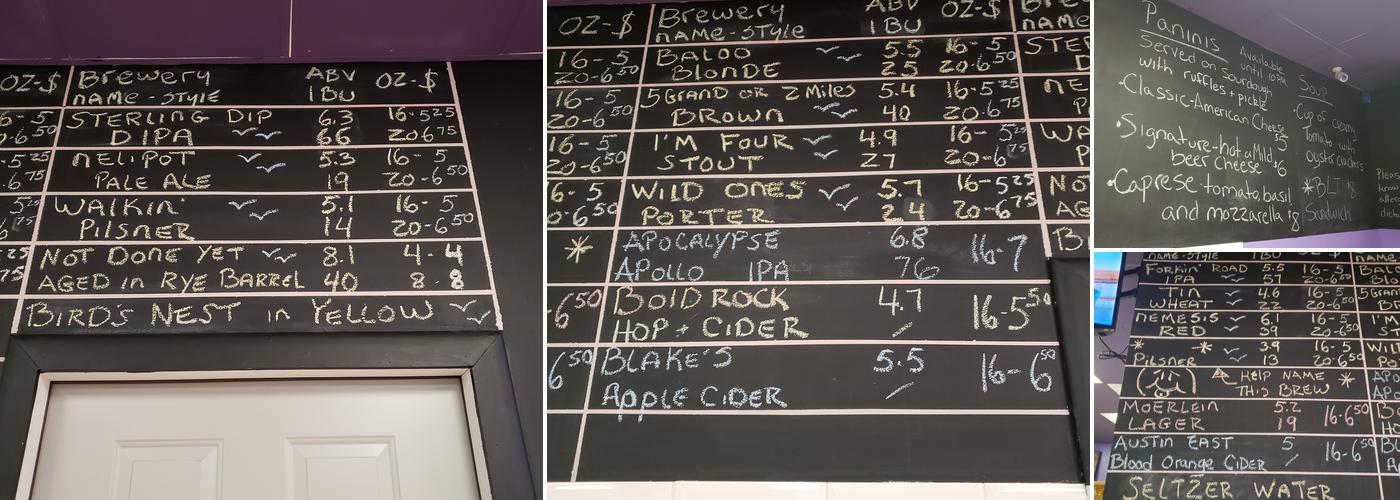 OZ-$ Brewery ABV OZ-$
NAME-STYLE IBU
6-5 STERLING DIP 6.3 16-5.25
0-6.50 DIPA 66 20-6.75
5.25 NELIPOT 5.3 16-5
.6.75 PALE ALE 19 20-6.50
5.25 WALKIN' 5.1 16-5
6.75 PILSNER 14 20-6.50
.25 NOT DONE YET 8.1 4-4
75 AGED IN RYE BARREL 40 8-8
BIRD'S NEST in YELLOW
OZ-$ Brewery ABV OZ-$ Bre
NAME-STYLE IBU NAME
16-5 BALOO 5.5 16-5 STER
20-6.50 BLONDE 25 20-6.50 D
16-5 5 GRAND OR 2 Miles 5.4 16-5.25 NE
20-6.50 BROWN 40 20-6.75 P
16-5 I'M FOUR 4.9 16-5.25 WA
20-6.50 STOUT 27 20-6.75 P
6-5 WILD ONES 5.7 16-5.25 NOT
0-6.50 PORTER 24 20-6.75 AG
* APOCALYPSE 6.8 16-7 BI
APOLLO IPA 76
6.50 BOLD ROCK 4.7 16-5.50
HOP + CIDER /
6.50 BLAKE'S 5.5 16-6.50
Apple CIDER /
Paninis
Served on Sourdough
with ruffles + pickle
Available
until 10PM
•Classic-American Cheese
$5
•Signature-hot or Mild
beer cheese $6
•Caprese-tomato, basil,
and mozzarella $8
Soup
•Cup of creamy
Tomato with
oyster crackers
*BLT $8
Sandwich
NAME-STYLE IBU NAM
FORKIN' ROAD 5.5 16-5 BAL
IPA 57 20-6.50 B
4.6 16-5 5 GRAN
WHEAT 22 20-6.50 B
NEMESIS 6.1 16-5 I'M
RED 39 20-6.50 S
* * 3.9 16-5 WIL
PILSNER 13 20-6.50 PO
HELP NAME * APO
THIS BREW
MOERLEIN 5.2 16-6.50
LAGER 19
AUSTIN EAST 5 16-6.50
Blood Orange CIDER /
SELTZER WATER